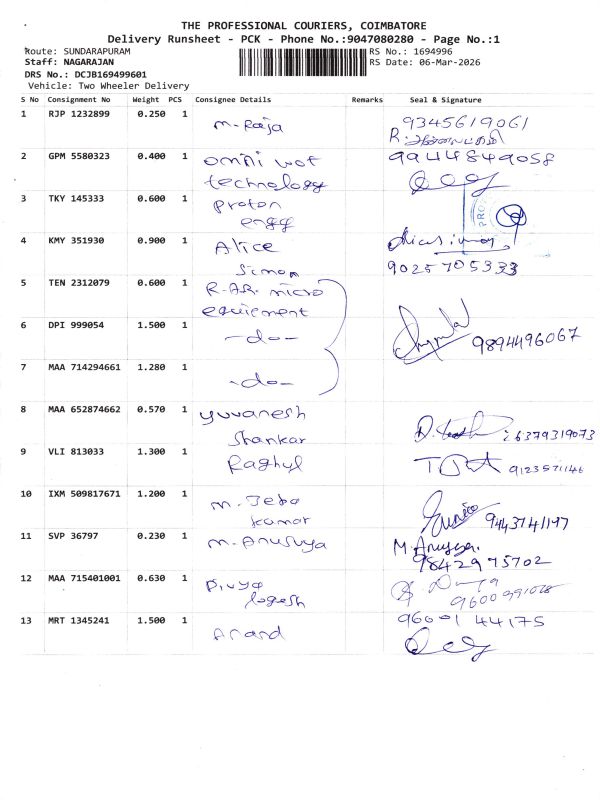 THE PROFESSIONAL COURIERS, COIMBATORE
Delivery Runsheet - PCK - Phone No.:9047080280 - Page No.:1
Route: SUNDARAPURAM RS No.: 1694996
Staff: NAGARAJAN RS Date: 06-Mar-2026
DRS No.: DCJB169499601
Vehicle: Two Wheeler Delivery
S No Consignment No Weight PCS Consignee Details Remarks Seal & Signature
1 RJP 1232899 0.250 1 M. Raja 9345619061
R.
2 GPM 5580323 0.400 1 omni wot 9944849058
technology
3 TKY 145333 0.600 1 Proton
engg
4 KMY 351930 0.900 1 Alice
Simon 9025705333
5 TEN 2312079 0.600 1 R.AR. micro
equiement
6 DPI 999054 1.500 1 -do- 9894496067
7 MAA 714294661 1.280 1 -do-
8 MAA 652874662 0.570 1 yuvanesh
Shankar : 6379319073
9 VLI 813033 1.300 1 Raghul 9123571146
10 IXM 509817671 1.200 1 M. Jeba
kumar 9443741197
11 SVP 36797 0.230 1 M. Anusuya M. Anusya.
9842975702
12 MAA 715401001 0.630 1 Divya
logesh 9600991028
13 MRT 1345241 1.500 1 Anand 9600144175